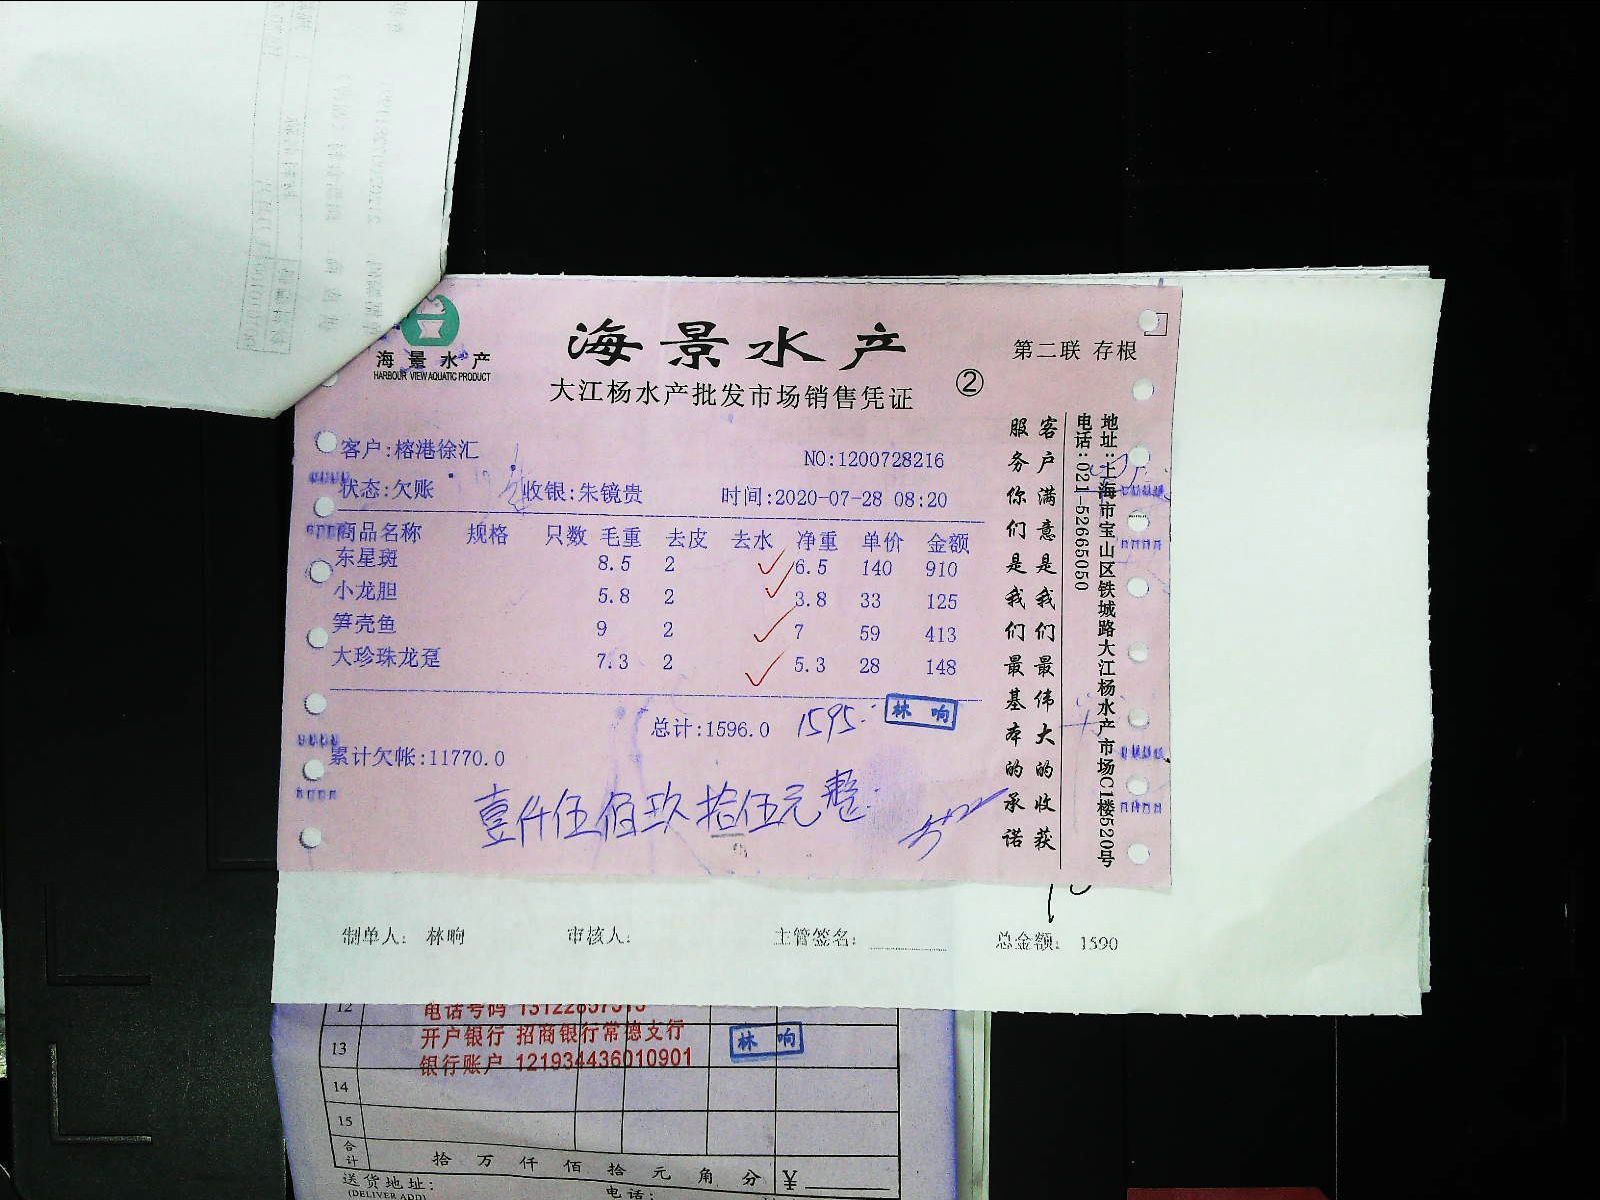 海景水产
HARBOUR VIEW AQUATIC PRODUCT
海景水产
大江杨水产批发市场销售凭证
②
第二联 存根
客户:榕港徐汇
NO:1200728216
状态:欠账 收银:朱镜贵 时间:2020-07-28 08:20
商品名称 规格 只数 毛重 去皮 去水 净重 单价 金额
东星斑 8.5 2 6.5 140 910
小龙胆 5.8 2 3.8 33 125
笋壳鱼 9 2 7 59 413
大珍珠龙趸 7.3 2 5.3 28 148
总计:1596.0 1595.- 林响
累计欠帐:11770.0
壹仟伍佰玖拾伍元整
客户满意是我们最伟大的收获
服务你们是我们最基本的承诺
地址:上海市宝山区铁城路大江杨水产市场C1楼520号
电话:021-52665050
制单人: 林响 审核人: 主管签名: 总金额: 1590
12 电话号码
13 开户银行 招商银行常德支行
银行账户 121934436010901
林响
14
15
合计 拾 万 仟 佰 拾 元 角 分 ¥
送货地址:
(DELIVER ADD)
电话: